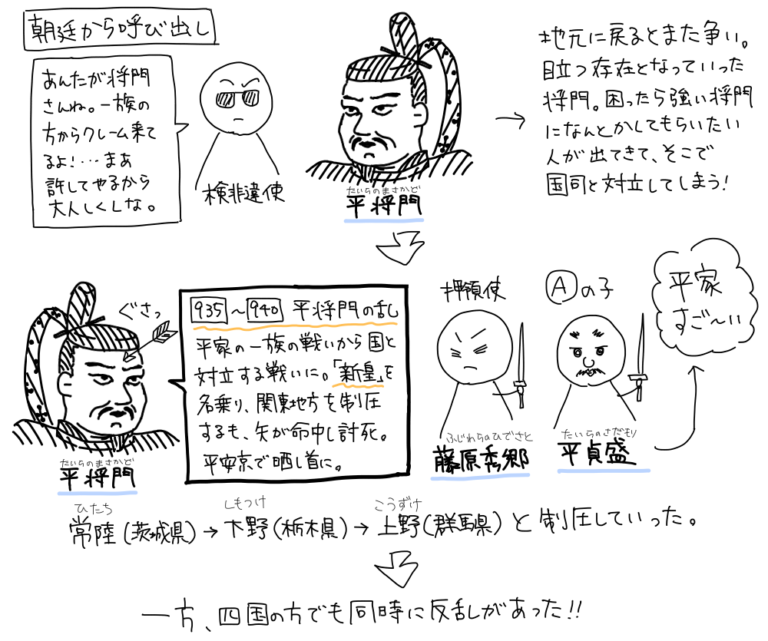 朝廷から呼び出し
あんたが将門
さんね。一族の
方からクレーム来て
るよ!…まあ
許してやるから
大人しくしな。
検非違使
たいらのまさかど
平将門
→ 地元に戻るとまた争い。
目立つ存在となっていった
将門。困ったら強い将門
になんとかしてもらいたい
人が出てきて、そこで
国司と対立してしまう!
ぐさっ
たいらのまさかど
平将門
935~940 平将門の乱
平家の一族の戦いから国と
対立する戦いに。「新皇」を
名乗り、関東地方を制圧
するも、矢が命中し討死。
平安京で晒し首に。
押領使
ふじわらのひでさと
藤原秀郷
Aの子
たいらのさだもり
平貞盛
平家
すご〜い
ひたち しもつけ こうずけ
常陸(茨城県)→下野(栃木県)→上野(群馬県)と制圧していった。
一方、四国の方でも同時に反乱があった!!